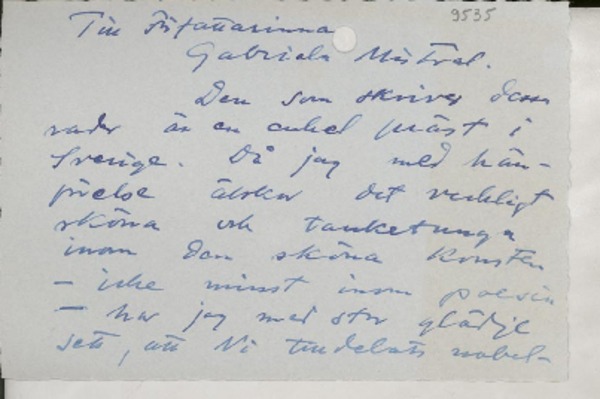 9535
Till Författarinna
Gabriela Mistral.
Den som skriver dessa
rader är en enkel präst i
Sverige. Då jag med hän-
förelse älskar det verkligt
sköna och tanketunga
inom den sköna konsten
- icke minst inom poesin
- har jag med stor glädje
sett, att Ni tilldelats nobel-